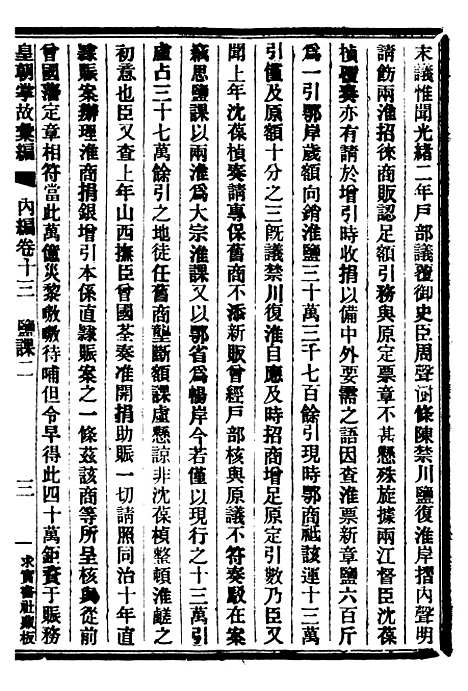 末議惟聞光緒二年戸部議覆御史臣周聲澍條陳禁川鹽復淮岸摺內聲明
請飭兩淮招徠商販認足額引務與原定票章不甚懸殊旋據兩江督臣沈葆
楨覆奏亦有請於增引時收捐以備中外要需之語因查淮票新章鹽六百斤
爲一引鄂岸歲額向銷淮鹽三十萬三千七百餘引現時鄂商祗該運十三萬
引僅及原額十分之三旣議禁川復淮自應及時招商增足原定引數乃臣又
聞上年沈葆楨奏請專保舊商不添新販曾經戸部核與原議不符奏駁在案
竊思鹽課以兩淮爲大宗淮課又以鄂省爲暢岸今若僅以現行之十三萬引
虛占三十七萬餘引之地徒任舊商壟斷額課虛懸諒非沈葆楨整頓淮鹺之
初意也臣又查上年山西撫臣曾國荃奏准開捐助賑一切請照同治十年直
隸賑案辦理淮商捐銀增引本係直隸賑案之一條茲該商等所呈核與從前
曾國藩定章相符當此萬億災黎嗷嗷待哺但令早得此四十萬鉅賚于賑務
皇朝掌故彙編 內編卷十三 鹽課二 三 求實書社藏板